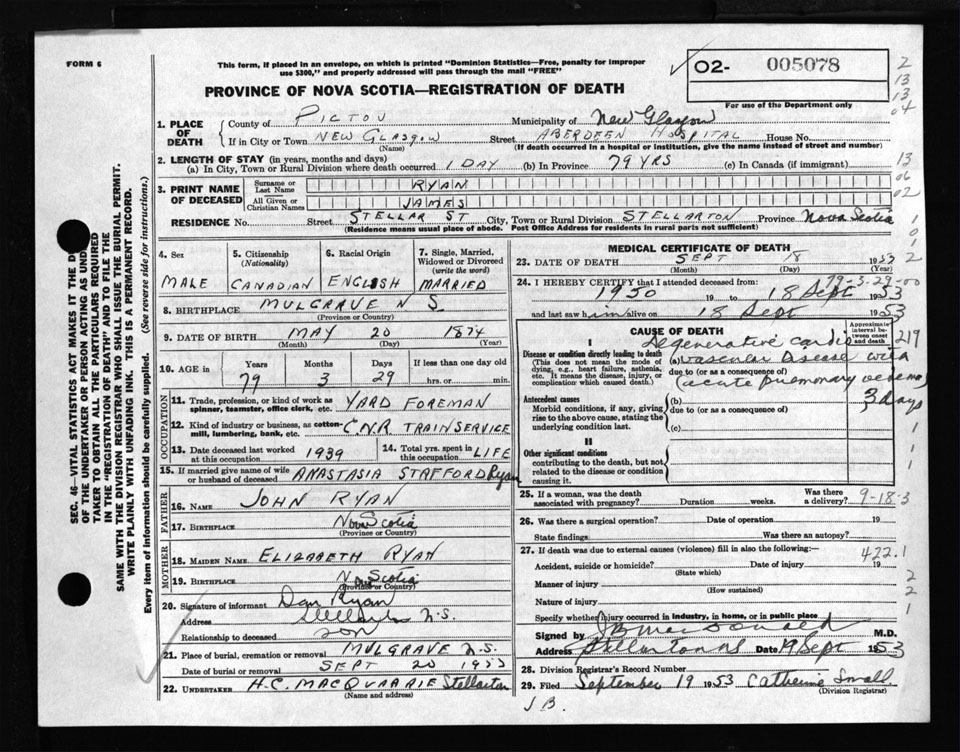 FORM 6
This form, if placed in an envelope, on which is printed "Dominion Statistics—Free, penalty for improper
use $300," and properly addressed will pass through the mail "FREE"
02- 005078
For use of the Department only
PROVINCE OF NOVA SCOTIA—REGISTRATION OF DEATH
2
13
13
04
13
06
02
1
0
1
2
1. PLACE OF DEATH County of PICTOU Municipality of New Glasgow
If in City or Town NEW GLASGOW Street ABERDEEN HOSPITAL House No.
(Name) (If death occurred in a hospital or institution, give the name instead of street and number)
2. LENGTH OF STAY (in years, months and days)
(a) In City, Town or Rural Division where death occurred 1 DAY (b) In Province 79 YRS (c) In Canada (if immigrant)
3. PRINT NAME OF DECEASED Surname or Last Name RYAN
All Given or Christian Names JAMES
RESIDENCE No. Street STELLAR ST City, Town or Rural Division STELLARTON Province Nova Scotia
(Residence means usual place of abode. Post Office Address for residents in rural parts not sufficient)
SEC. 46—VITAL STATISTICS ACT MAKES IT THE
OF THE UNDERTAKER OR PERSON ACTING AS UND
TAKER TO OBTAIN ALL THE PARTICULARS REQUIRED
IN THE "REGISTRATION OF DEATH" AND TO FILE THE
SAME WITH THE DIVISION REGISTRAR WHO SHALL ISSUE THE BURIAL PERMIT.
WRITE PLAINLY WITH UNFADING INK. THIS IS A PERMANENT RECORD.
Every item of information should be carefully supplied. (See reverse side for instructions.)
4. Sex
MALE
5. Citizenship
(Nationality)
CANADIAN
6. Racial Origin
ENGLISH
7. Single, Married,
Widowed or Divorced
(write the word)
MARRIED
8. BIRTHPLACE MULGRAVE N S
(Province or Country)
9. DATE OF BIRTH MAY 20 1874
(Month) (Day) (Year)
10. AGE in Years Months Days If less than one day old
79 3 29 hrs. or min.
OCCUPATION
11. Trade, profession, or kind of work as
spinner, teamster, office clerk, etc. YARD FOREMAN
12. Kind of industry or business, as cotton-
mill, lumbering, bank, etc. C.N.R TRAIN SERVICE
13. Date deceased last worked
at this occupation 1939
14. Total yrs. spent in
this occupation LIFE
15. If married give name of wife
or husband of deceased ANASTASIA STAFFORD Ryan
FATHER
16. NAME JOHN RYAN
17. BIRTHPLACE Nova Scotia
(Province or Country)
MOTHER
18. MAIDEN NAME ELIZABETH RYAN
19. BIRTHPLACE Nova Scotia
(Province or Country)
20. Signature of informant Dan Ryan
Address Stellarton N.S.
Relationship to deceased son
21. Place of burial, cremation or removal MULGRAVE N.S.
Date of burial or removal SEPT 20 1953
22. UNDERTAKER H.C. MACQUARRIE Stellarton
(Name and address)
MEDICAL CERTIFICATE OF DEATH
23. DATE OF DEATH SEPT 18 1953
(Month) (Day) (Year)
79-3-29-00
24. I HEREBY CERTIFY that I attended deceased from:
1950 19 to 18 Sept 1953
and last saw him alive on 18 Sept 1953
CAUSE OF DEATH
Approximate interval between onset and death
219
I
Disease or condition directly leading to death
(This does not mean the mode of
dying, e.g., heart failure, asthenia,
etc. It means the disease, injury, or
complication which caused death.)
Degenerative cardio
(a) vascular disease with
due to (or as a consequence of)
(acute pulmonary oedema)
3 days
Antecedent causes
Morbid conditions, if any, giving
rise to the above cause, stating the
underlying condition last.
(b)
due to (or as a consequence of)
(c)
II
Other significant conditions
contributing to the death, but not
related to the disease or condition
causing it.
1
1
1
25. If a woman, was the death
associated with pregnancy? Duration weeks. Was there
a delivery? 9-18-3
26. Was there a surgical operation? Date of operation 19
State findings Was there an autopsy?
27. If death was due to external causes (violence) fill in also the following:— 422.1
Accident, suicide or homicide? Date of injury 19
(State which)
Manner of injury 2
(How sustained)
Nature of injury 2
Specify whether injury occurred in industry, in home, or in public place 1
Signed by JB MacDonald M.D.
Address Stellarton NS Date 19 Sept 1953
28. Division Registrar's Record Number
29. Filed September 19 1953 Catherine Small
(Division Registrar)
J B.